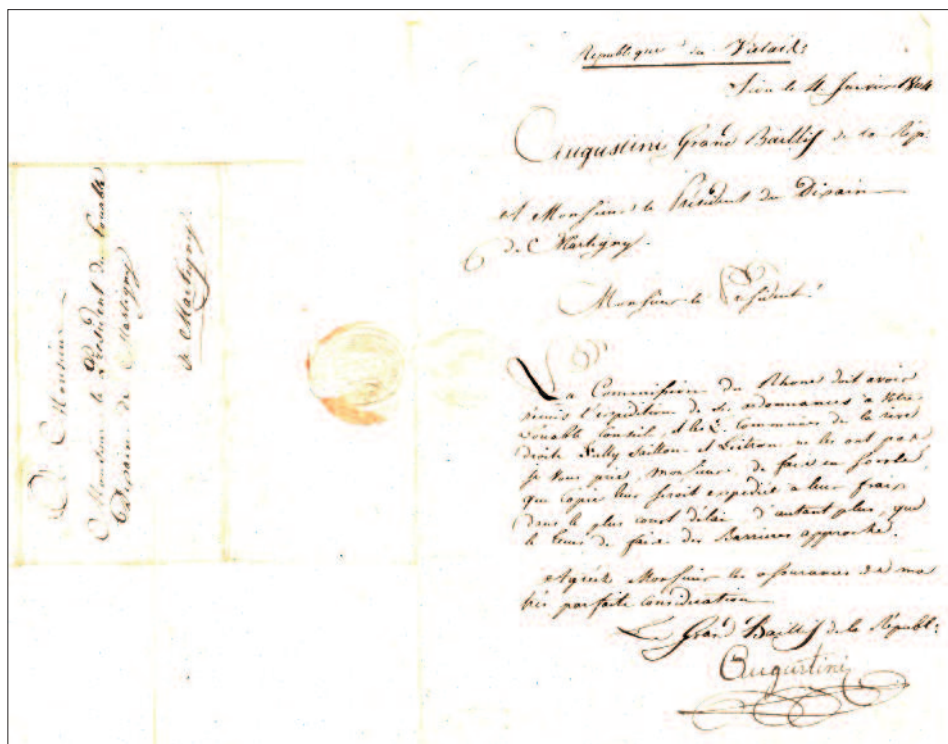 A Monsieur
Monsieur le Président du Louable
Dixain de Martigny
à Martigny
République du Valais:
Sion le 4. Janvier 1804
Augustini Grand Baillif de la Rép.
A Monsieur le Président du Dixain
de Martigny.
Monsieur le Président!
La Commission du Rhone doit avoir
remis l'expedition de ses ordonnances à votre
Louable Conseil, et les Communes de la rive
droite Fully Saillon et Leitron ne les ont pas
je vous prie, monsieur, de faire en sorte,
que copie leur seroit expediée a leur frais
dans le plus court délai d'autant plus, que
le tems de faire des Barrieres approche.
Agréés Monsieur les assurances de ma
très parfaite consideration
Le Grand Baillif de la Républ:
Augustini